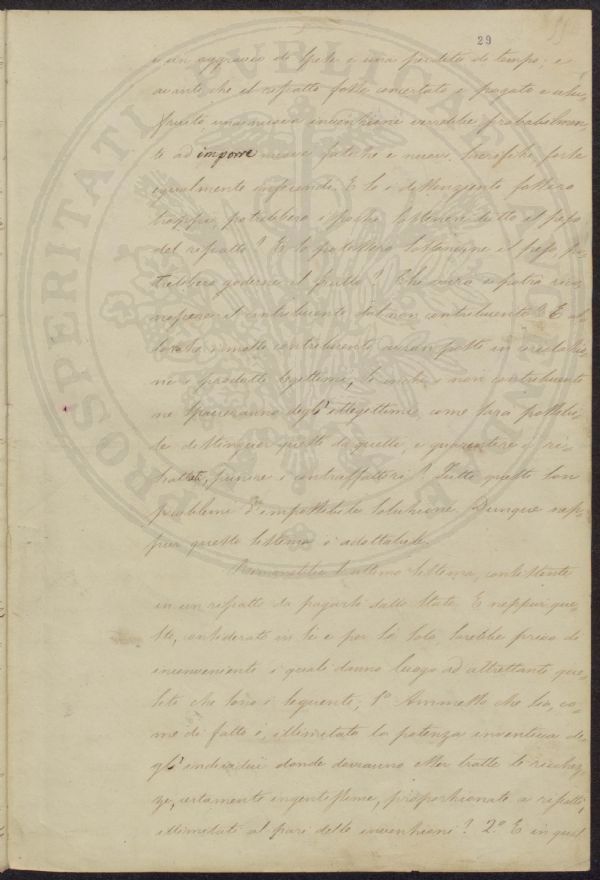 29
e un aggravio di spese e una perdita di tempo; e
avanti che il riscatto fosse concertato e pagato e usu-
fruito, una nuova invenzione verrebbe probabilmen-
te ad imporre nuove fatiche e nuove, forse
egualmente infeconde. E se i dissenzienti fossero
troppi, potrebbero i pochi sostenere tutto il peso
del riscatto? E se potessero sostenerne il peso, po-
trebbero goderne il frutto? Chi mai potrà rico-
noscere il contribuente dal non contribuente? E al-
lorchè i molti contribuenti avran posto in circolazio-
ne i prodotti legittimi, se anche i non contribuenti
ne spacceranno degl' illegittimi, come sarà possibi-
le distinguer questi da quelli, e guarentire i ri-
scattati, punire i contraffattori? Tutti questi son
problemi d'impossibile soluzione. Dunque nep-
pur questo sistema è adottabile.
Rimarrebbe l'ultimo sistema, consistente
in un riscatto da pagarsi dallo Stato. E neppur que-
sto, considerato in sè e per sè solo, sarebbe privo di
inconvenienti i quali danno luogo ad altrettanti que-
siti che sono i seguenti; 1.º Ammesso che sia, co-
me di fatto è, illimitata la potenza inventiva de-
gl' individui donde dovranno esser tratte le ricchez-
ze, certamente ingentissime, proporzionate a riscatti
illimitati al pari delle invenzioni? 2.º E in qual